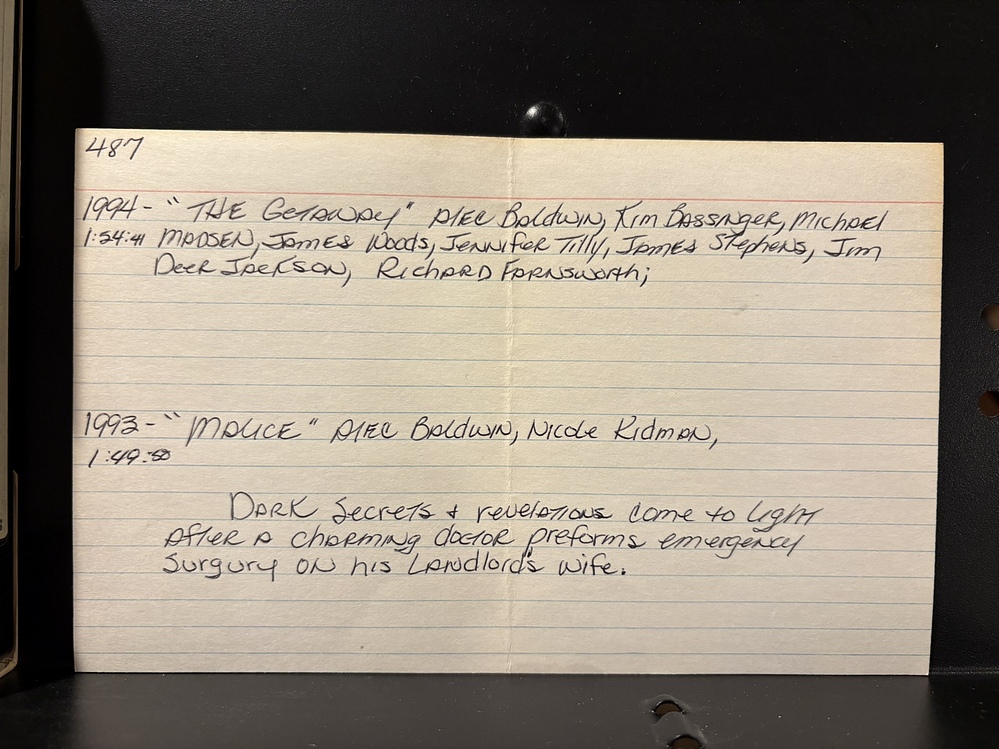 487
1994 - "THE GETAWAY" Alec Baldwin, Kim Bassinger, Michael
1:54:41 MADSEN, James Woods, Jennifer Tilly, James Stephens, Jim
Deer Jackson, Richard Farnsworth;
1993 - "MALICE" Alec Baldwin, Nicole Kidman,
1:49:50
Dark Secrets + revelations come to light
after a charming doctor preforms emergency
Surgury on his Landlord's wife.